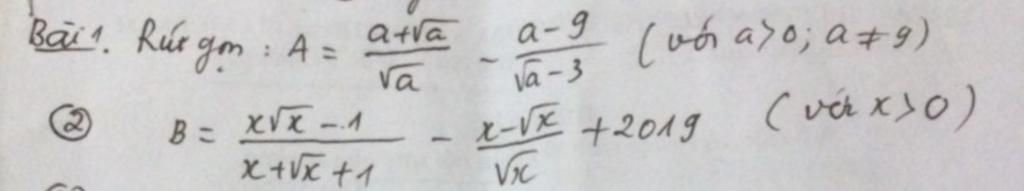 Bài 1. Rút gọn : A = (a+√a)/√a - (a-9)/(√a-3) (với a>0; a≠9)
② B = (x√x-1)/(x+√x+1) - (x-√x)/√x + 2019 (với x>0)